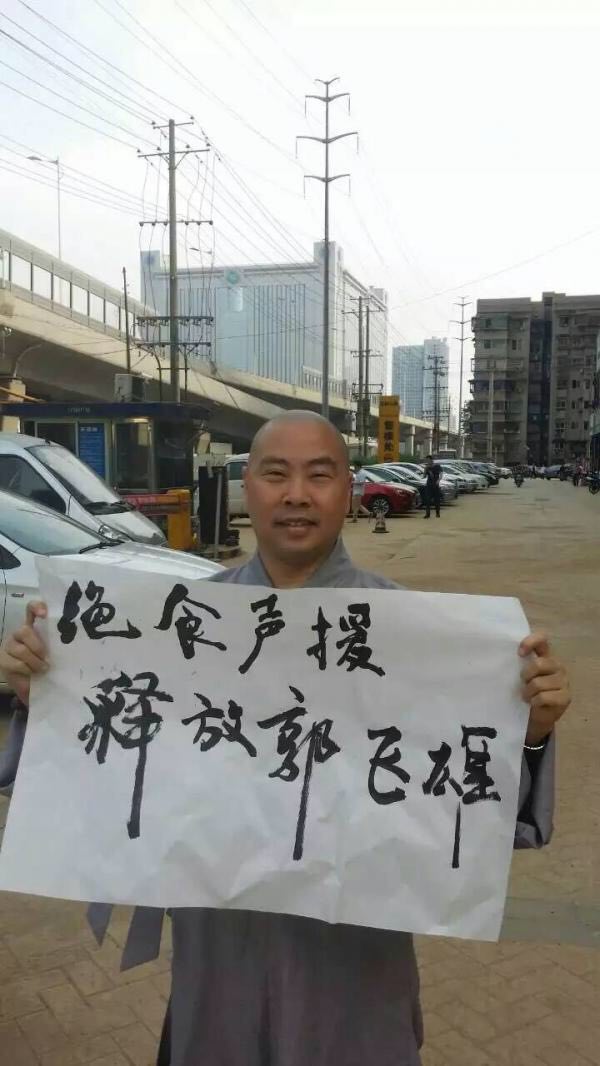 绝食声援
释放郭飞雄